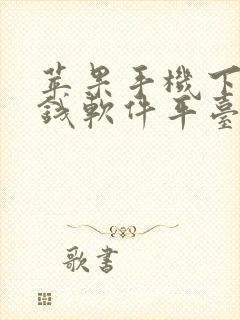 苹果手機下
錢軟件平臺
歌書